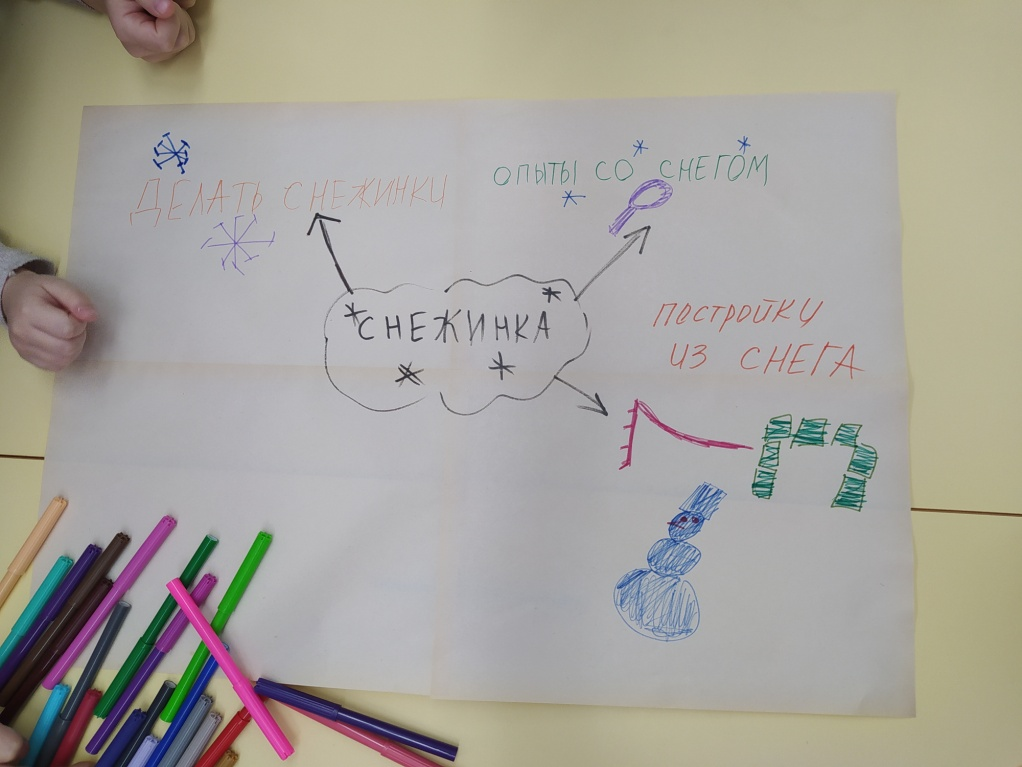 ДЕЛАТЬ СНЕЖИНКИ
ОПЫТЫ СО СНЕГОМ
СНЕЖИНКА
ПОСТРОЙКИ
ИЗ СНЕГА